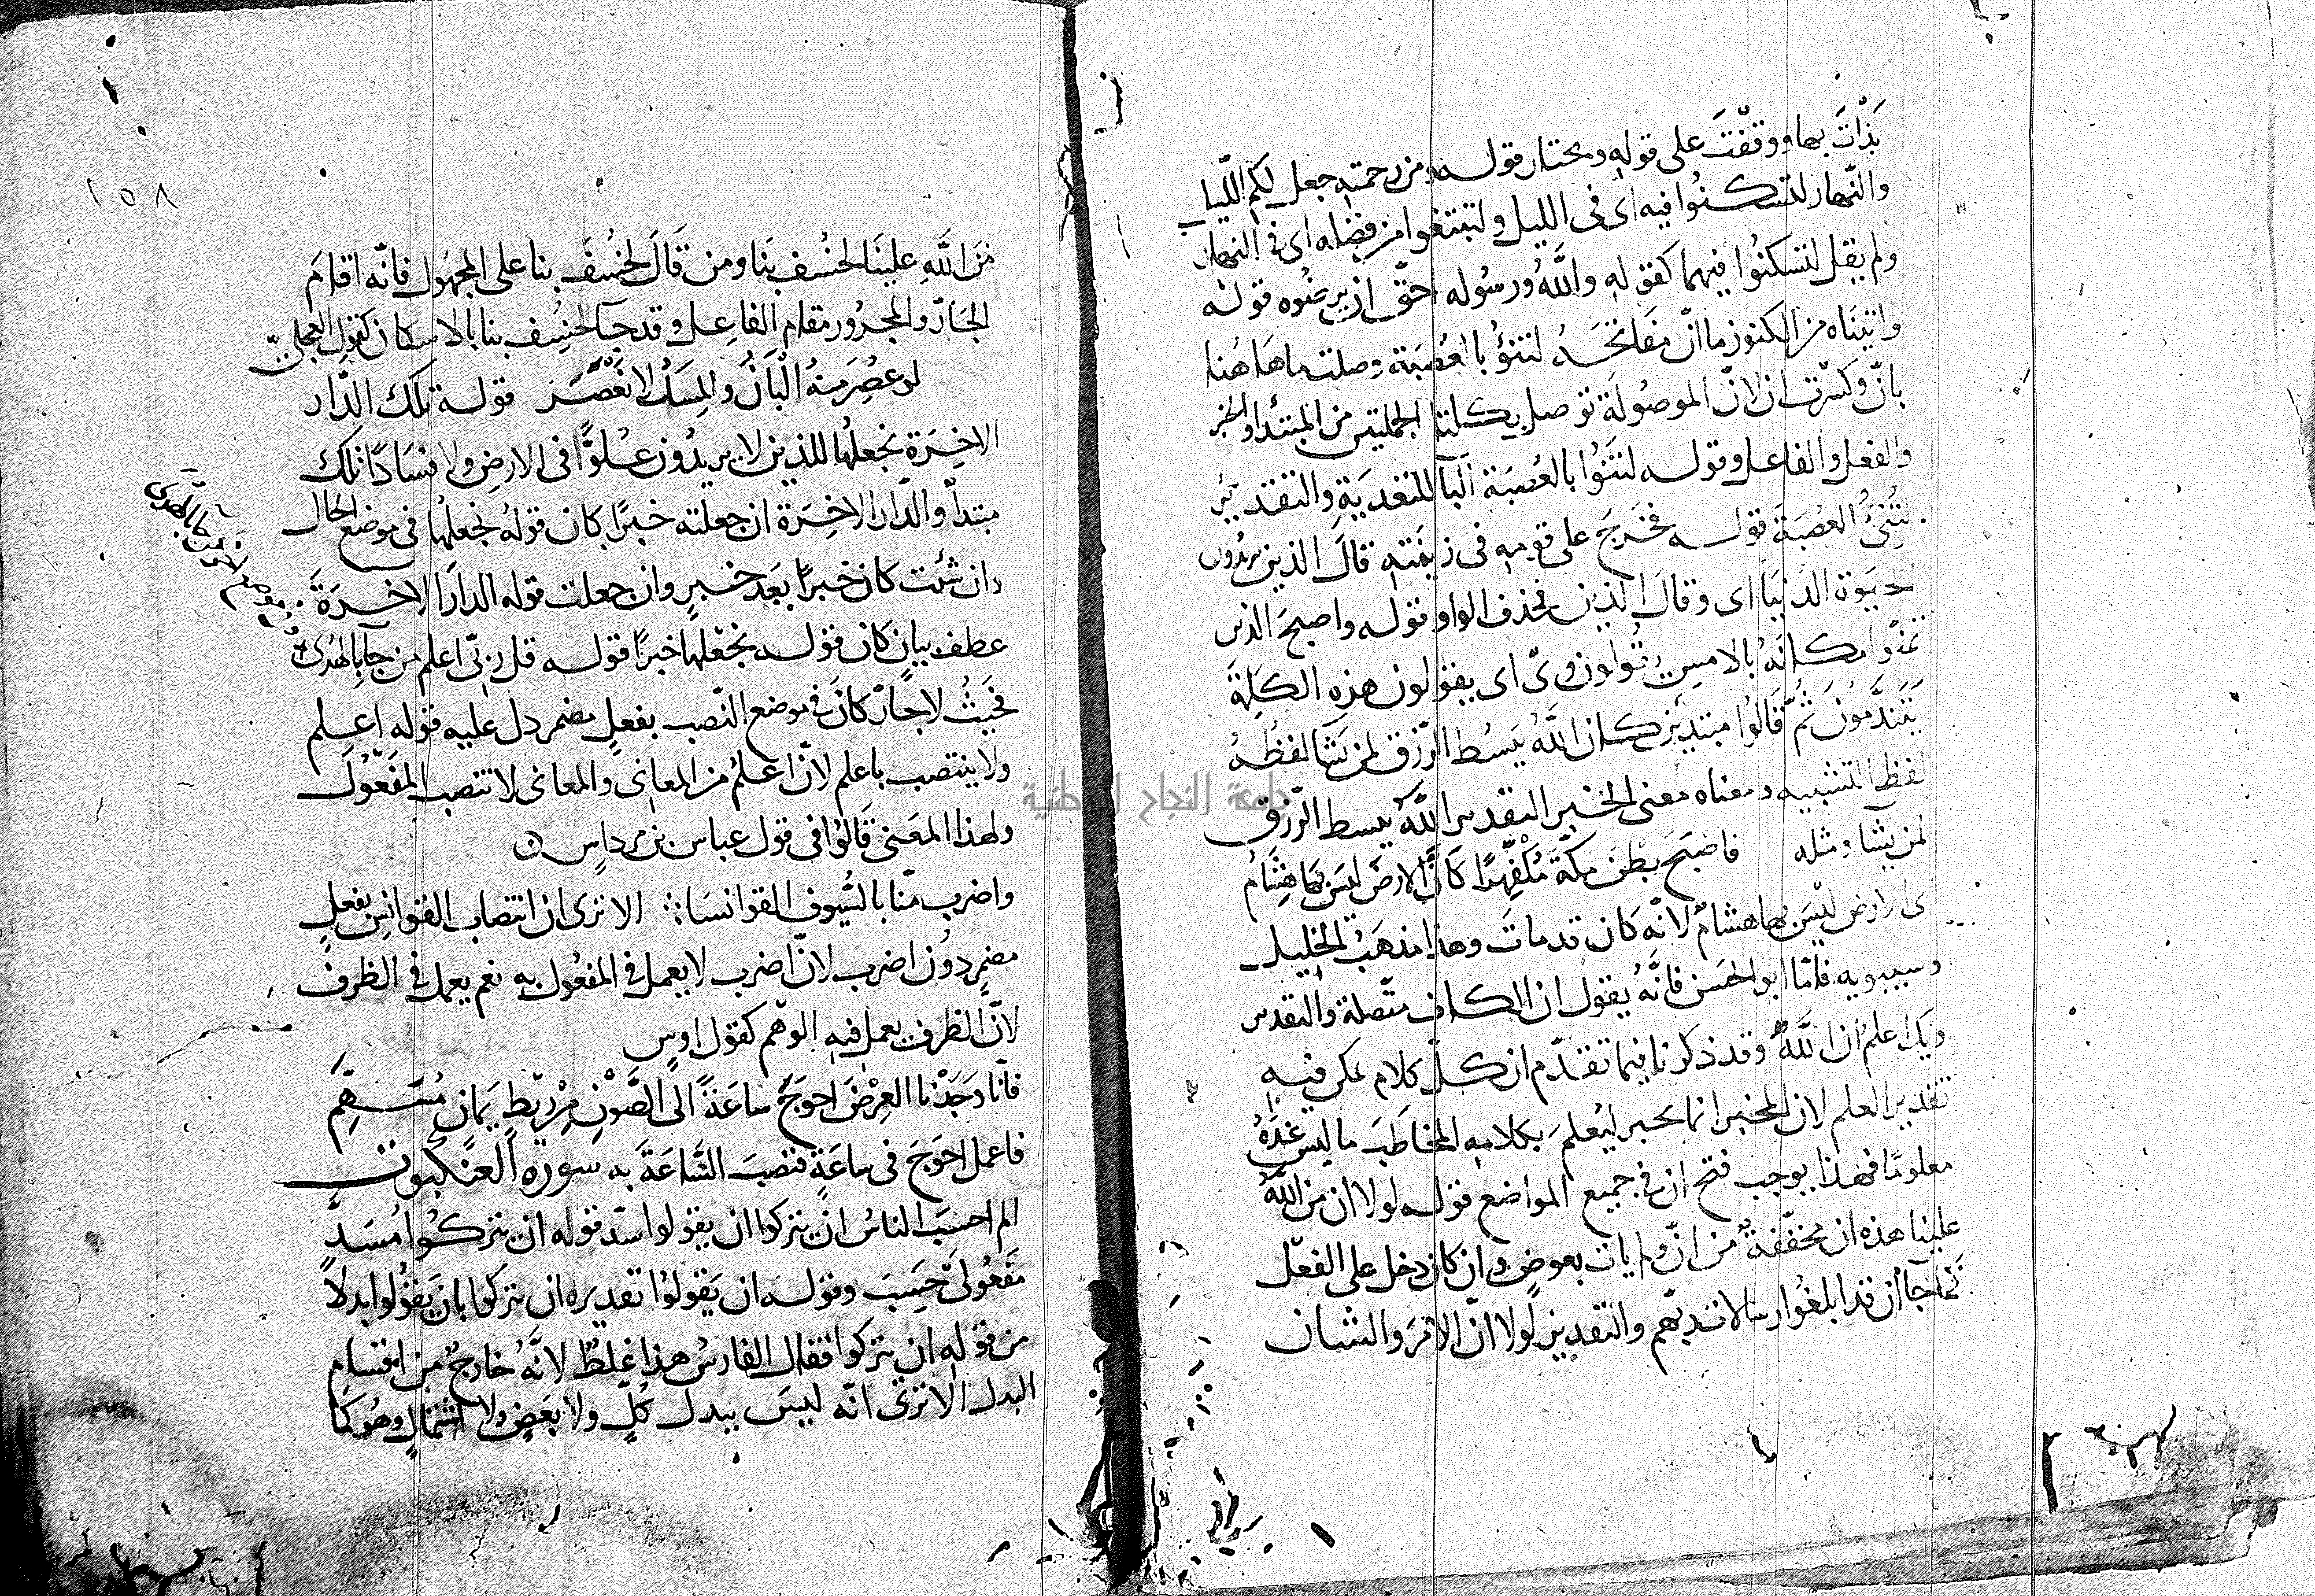 بدأت بها ووقفت على قوله ويختار قوله ومن رحمته جعل لكم الليل
والنّهار لتسكنُوا فيه اى فى الليل ولتبتغوا من فضله اى فى النهار
ولم يقل لتسكنُوا فيهما كقوله واللهُ ورسُوله احقّ ان يرضُوه قوله
واتينَاه من الكنوز ما انّ مفاتحَهُ لتنؤُ بالعُصبَة وصلت ما هَاهُنا
بانّ وكسّرت ان لانّ الموصُولَة توصل بكلتا الجملتين من المبتدأ والخبر
والفعل والفاعل وقوله لتنَوُا بالعُصبَة البآ للتعديَةِ والتقديرُ
لتُنِئُ العُصْبَةَ قوله فخَرجَ على قومِهِ فى زينَتهِ قالَ الذين يريدُون
الحيوة الدنيَا اى وقالَ الذين فحذف الواو قوله واصبحَ الذين
تمنّوا مكانَهُ بالامسِ يقُولون وىّ اى يقولون هذهِ الكلِمَةَ
يَتَندَّمُونَ ثُمَّ قَالُوا مبتدئين كان اللهُ يَبسُط الرّزق لمن يَشَا لفظُهُ
لفظ التشبيه ومعناه معنى الخبر التقدير اللهُ يبسط الرّزق
لمن يشا ومثله فاصبَح بطْنُ مكّةَ مُقْشَعِرًّا كأنّ الارضَ ليسَ بها هِشَامُ
اى الارض ليْسَ بها هشامٌ لانّه كَان قد ماتَ وهذا مذهَبُ الخليل
وسيبويه فامّا ابو الحَسَن فانّهُ يقول ان الكاف متّصلة والتقدير
ويك اعلمُ انّ اللهَ وقد ذكرنا فيما تقدّم ان كلّ كلامٍ يمكن فيهِ
تقدير العلم لان المخبر انما يخبر ليُعلمَ بكلامِهِ المخاطَبَ ما ليسَ عندَهُ
معلومًا فهذا يوجب فتح ان فى جميع المواضع قوله لولا ان منّ اللهُ
علينا هذه ان مخفّفةٌ من انّ ولم يات بعوضٍ وان كان دخل على الفعل
كما جآ ان قد ابلغُوا رسالات ربّهم والتقدير لولا انّ الامرَ والشان
١٥٨
منّ اللهِ علينَا لخسُف بنَا ومن قَالَ لخُسِفَ بنا على المجهُول فانّه اقامَ
الجَارّ والمجرُور مقام الفاعِل وقد جآ لخسِف بنا بالاسكان كقول العجلىّ
لو عُصْرَ منهُ الْبَانُ والمِسْكُ لانْعَصَرَ قوله تلك الدّار
الاخِرَة نجعلُها للذين لا يريدُون عُلوًّا فى الارضِ ولا فسَادًا تلك
مبتدأ والدّار الاخِرَة ان جعلته خبرًا كان قوله نجعلُها فى موضع الحال
وان شئت كان خبرًا بعَد خبرٍ وان جعلت قوله الدارَ الاخرةَ
عطف بيانٍ كان قوله نجعَلُها خبرًا قوله قل ربّى اعلم من جآ بالهُدىٰ
فحَيثُ لا جارّ كانَ فى موضع النّصب بفعلٍ مضمر دل عليه قوله اعلم
ولا ينتصب باعلم لانّ اعلمُ من المعانى والمعانى لا تنصب المفعُولَ
ولهذا المعنى قَالوُا فى قول عباس بن مرداسٍ
واضرب منّا بالسُّيوف القوانسَا الا ترى ان انتصاب القوانِس بفعلٍ
مضمرٍ دوُن اضرب لانّ اضرب لا يعمل فى المفعُول به نعم يعمل فى الظرف
لانّ الظرف يعمل فيه الوهم كقول اوسٍ
فانّا وَجَدْنا العِرْضَ احوَجَ ساعَةً الى الصَّوْنِ مِنْ رَيْطٍ يَمانٍ مُسَهَّمِ
فاعمل احوَجَ فى ساعَةٍ فنصبَ السَّاعَةَ به سورة العنكبوت
الم احسبَ الناسُ ان يتركوا ان يقولوا سدّ قوله ان يتركُوا مُسَدّ
مَفعُولىَ حَسِبَ وقوله ان يَقولوُا تقديره ان يتركوا بان يَقُولوا بدلًا
من قولهِ ان يتركوا فقال الفارسُ هذا غلطٌ لانّهُ خارجٌ من اقسامِ
البدل الا ترى انّه ليسَ ببدل كُلٍّ ولا بَعضٍ ولا اشتمالٍ وهُو كمَا
جامعة النجاح الوطنية